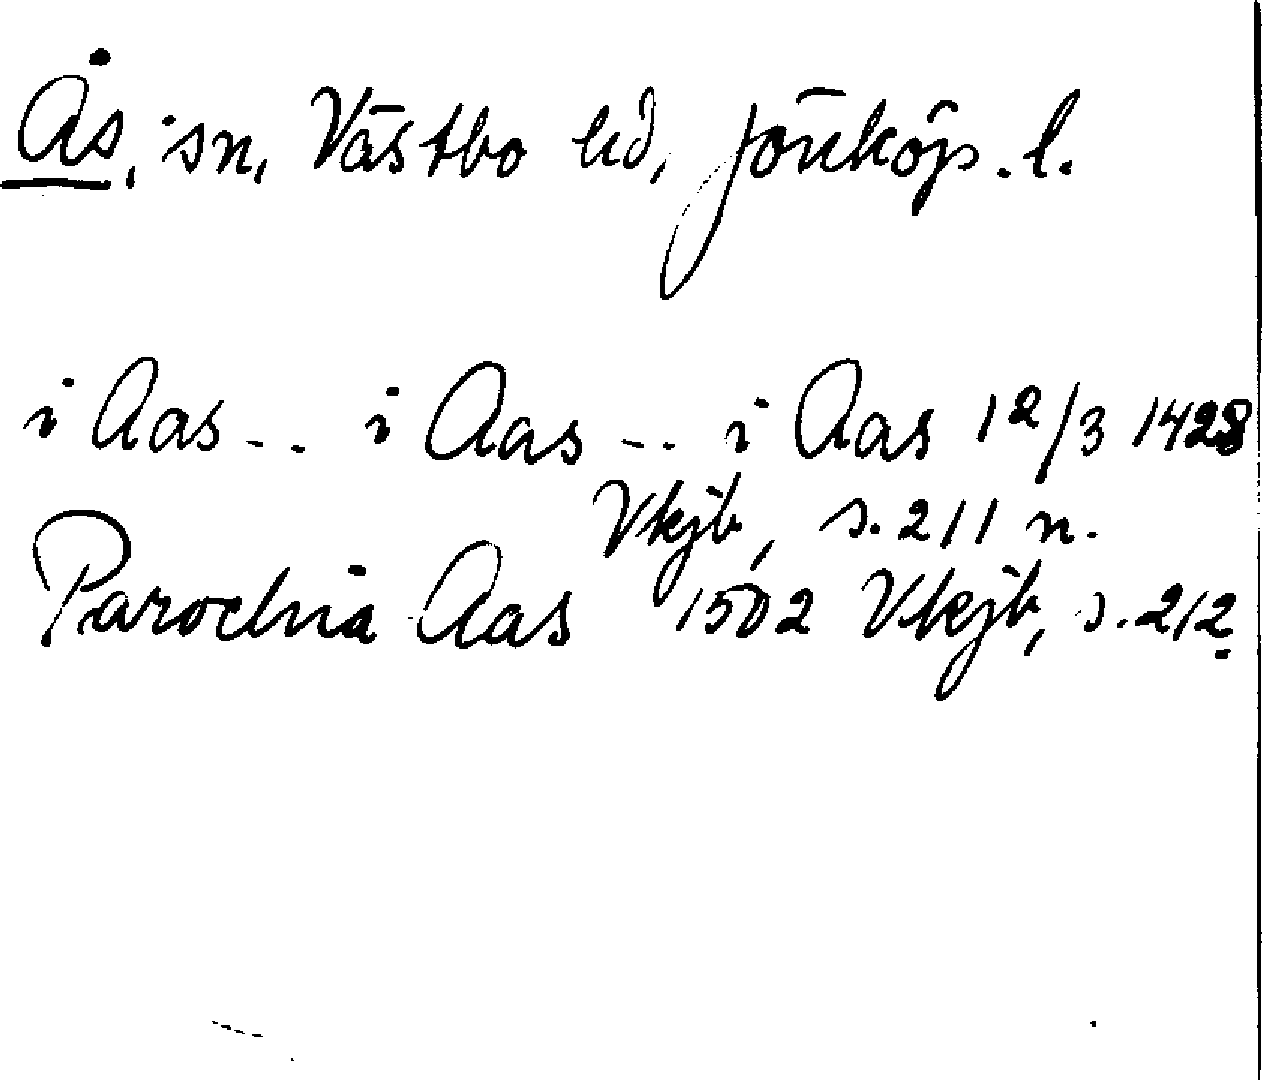 Ås, sn, Västbo hd, Jönköp. l.
i Aas - .. i Aas - .. i Aas 12/3 1428
Vkjb, s. 211 n.
Parochia Aas 1502 Vkjb, s. 212